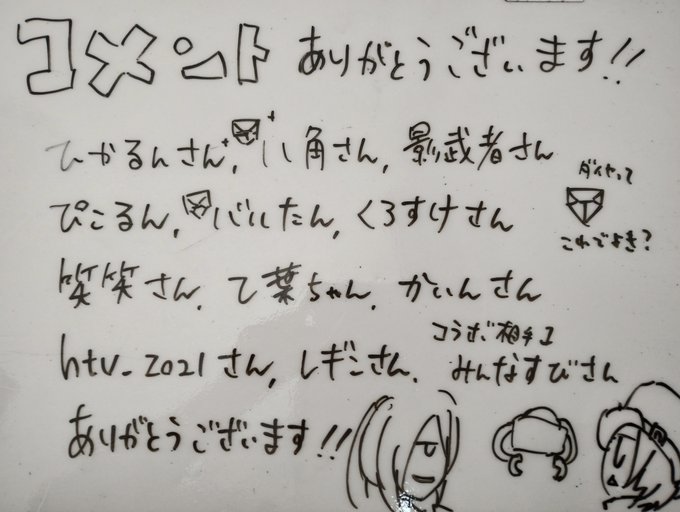 コメント ありがとうございます!!
ひかるんさん, 八角さん, 影武者さん
ぴこるん, バルたん, くろすけさん
ダイヤって
これでよき?
笑笑さん, 乙葉ちゃん, かいんさん
コラボ相手1
htv_2021さん, レギンさん, みんなすびさん
ありがとうございます!!